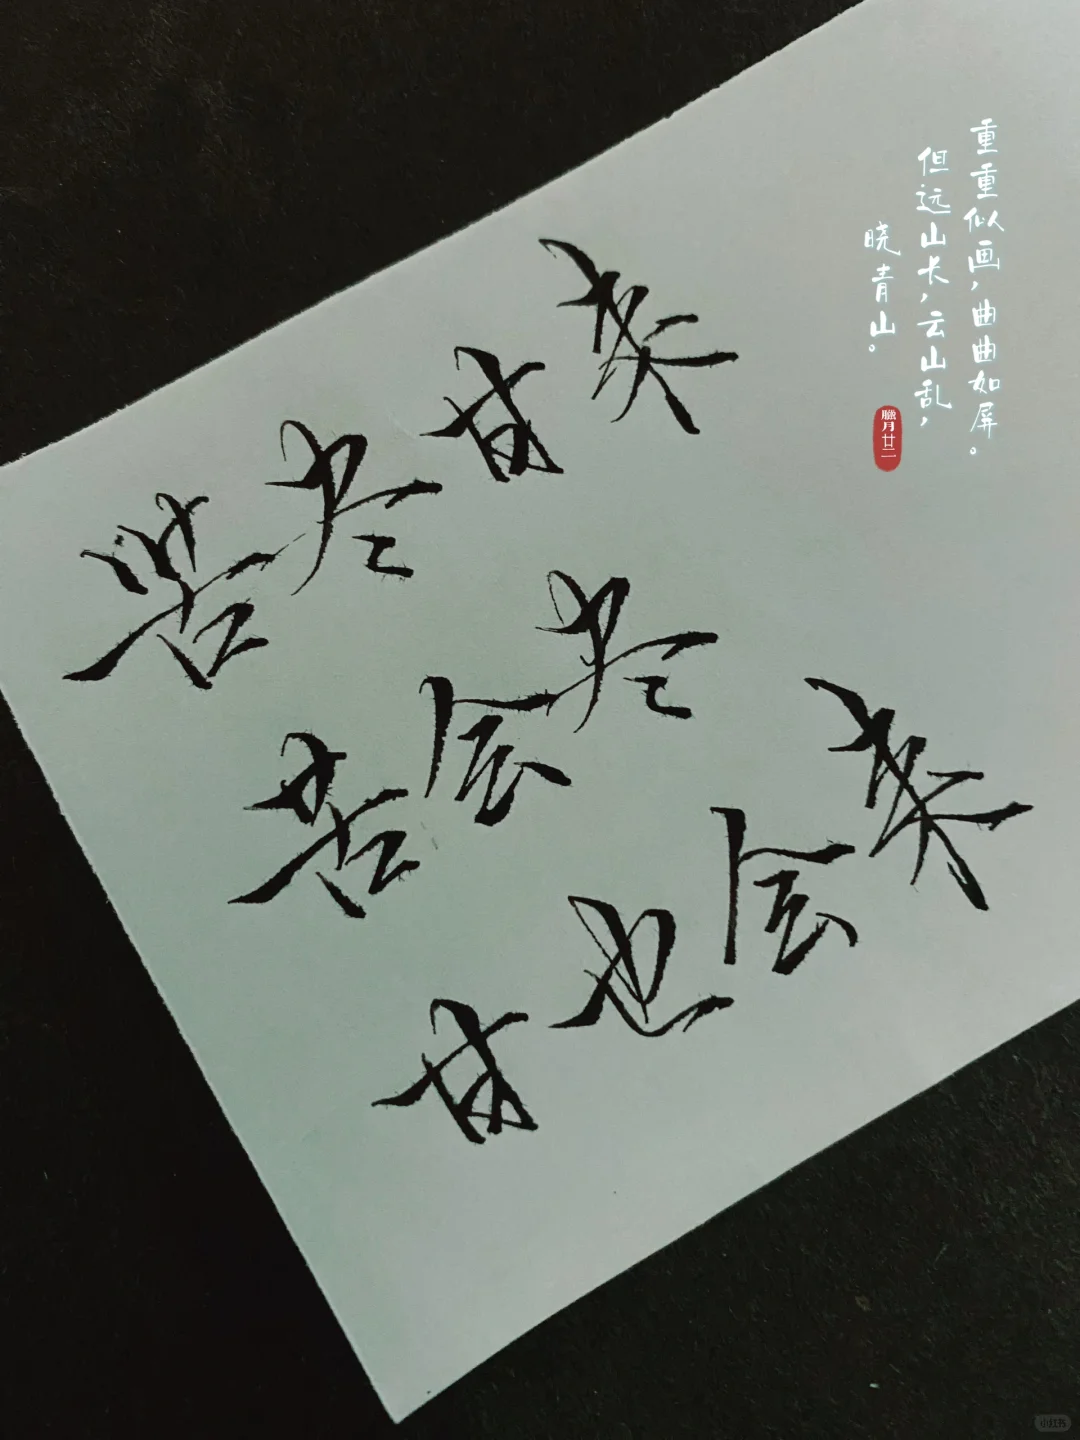 苦尽甘来
苦会尽
甘也会来
重重似画，曲曲如屏。
但远山长，云山乱，
晓青山。
臘月廿二
小红书